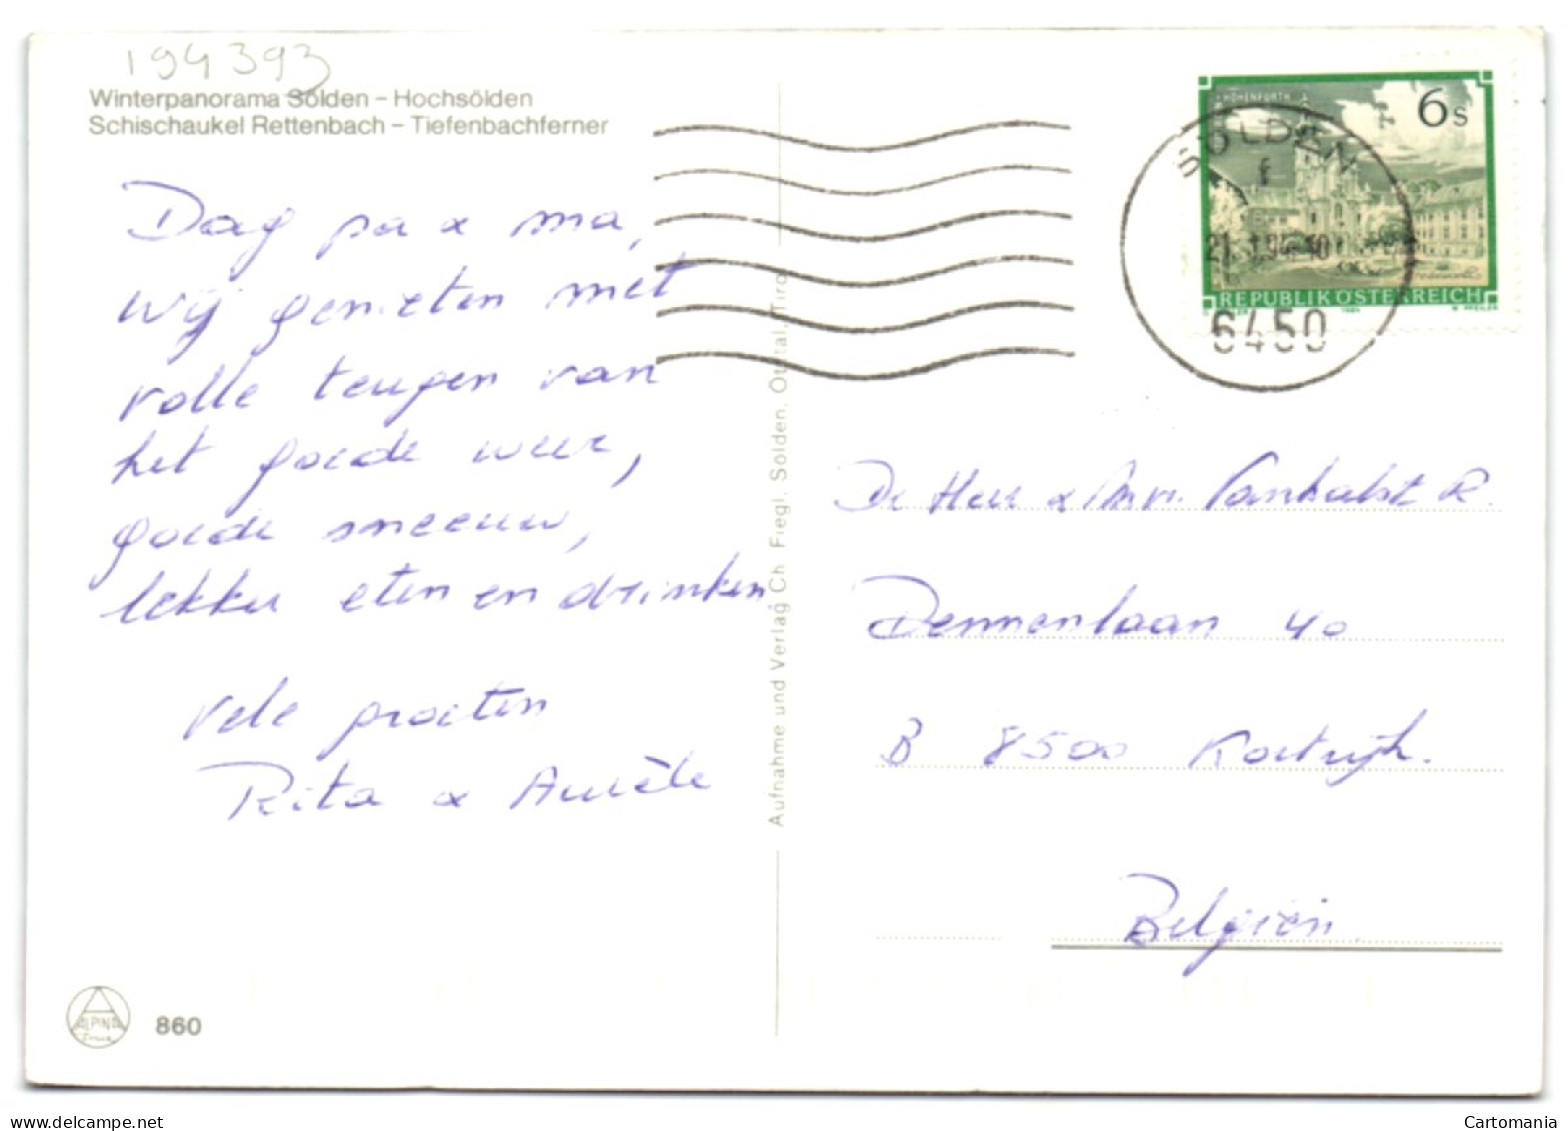 194393
Winterpanorama Sölden – Hochsölden
Schischaukel Rettenbach – Tiefenbachferner
Dag pa & ma,
wij genieten met
volle teugen van
het goede weer,
goede sneeuw,
lekker eten en drinken
vele groeten
Rita & Aurèle
ALPINA
860
Aufnahme und Verlag Ch. Fiegl, Sölden, Ötztal, Tirol
SÖLDEN
f
6450
6s
REPUBLIK ÖSTERREICH
De Heer & Mvr. Vanhalst R.
Dennenlaan 40
B 8500 Kortrijk.
Belgiën
Cartomania